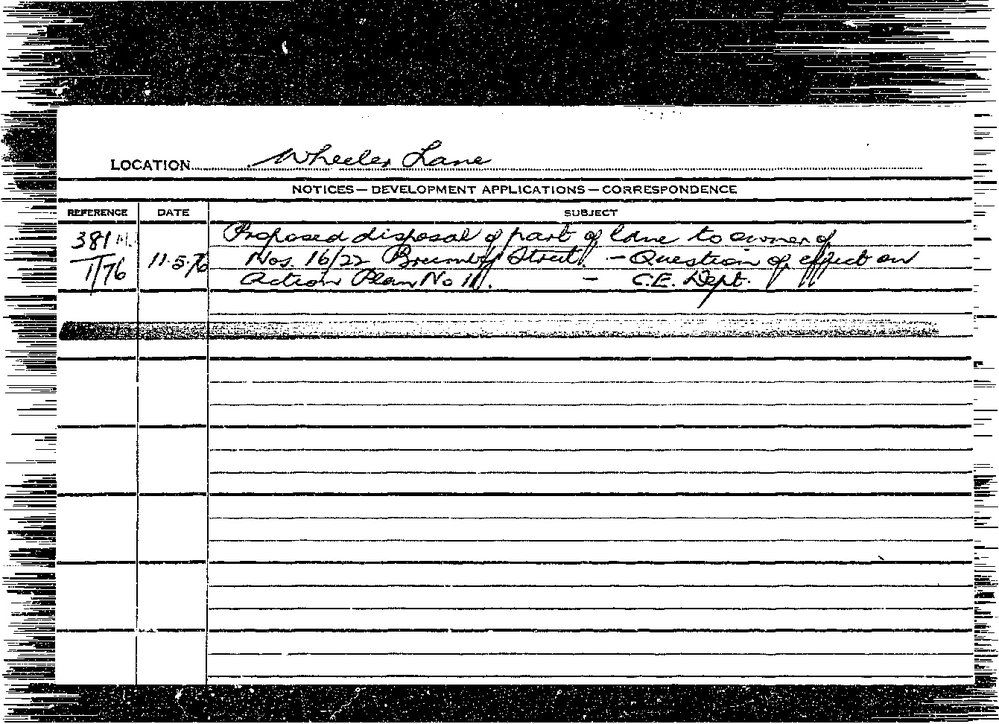 LOCATION Wheeler Lane
NOTICES — DEVELOPMENT APPLICATIONS — CORRESPONDENCE
REFERENCE DATE SUBJECT
381 Proposed disposal of part of lane to owner of
1/76 11.5.76 Nos. 16/22 Brumby Street. - Question of effect on
Action Plan No 11. - C.E. Dept.